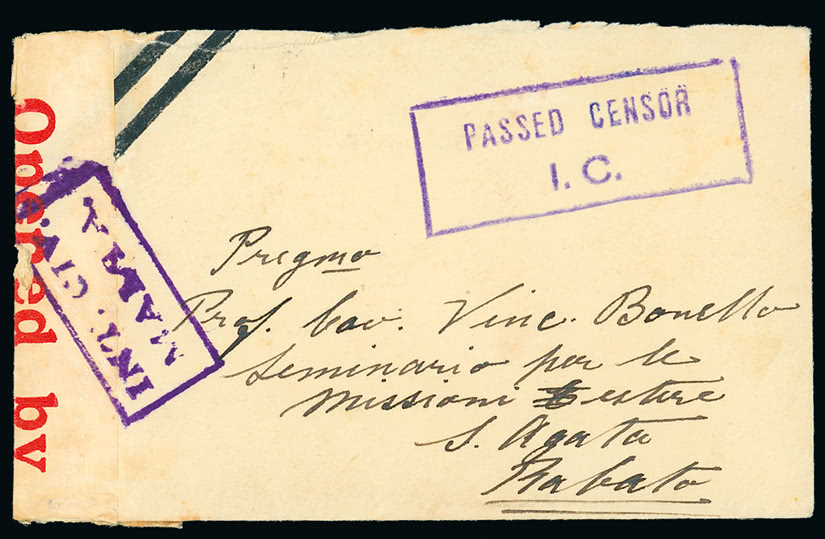 Opened by
INT. CIV.
MALTA
PASSED CENSOR
I. C.
Pregmo
Prof. Cav. Vinc. Bonello
Seminario per le
Missioni Estere
S. Agata
Rabato